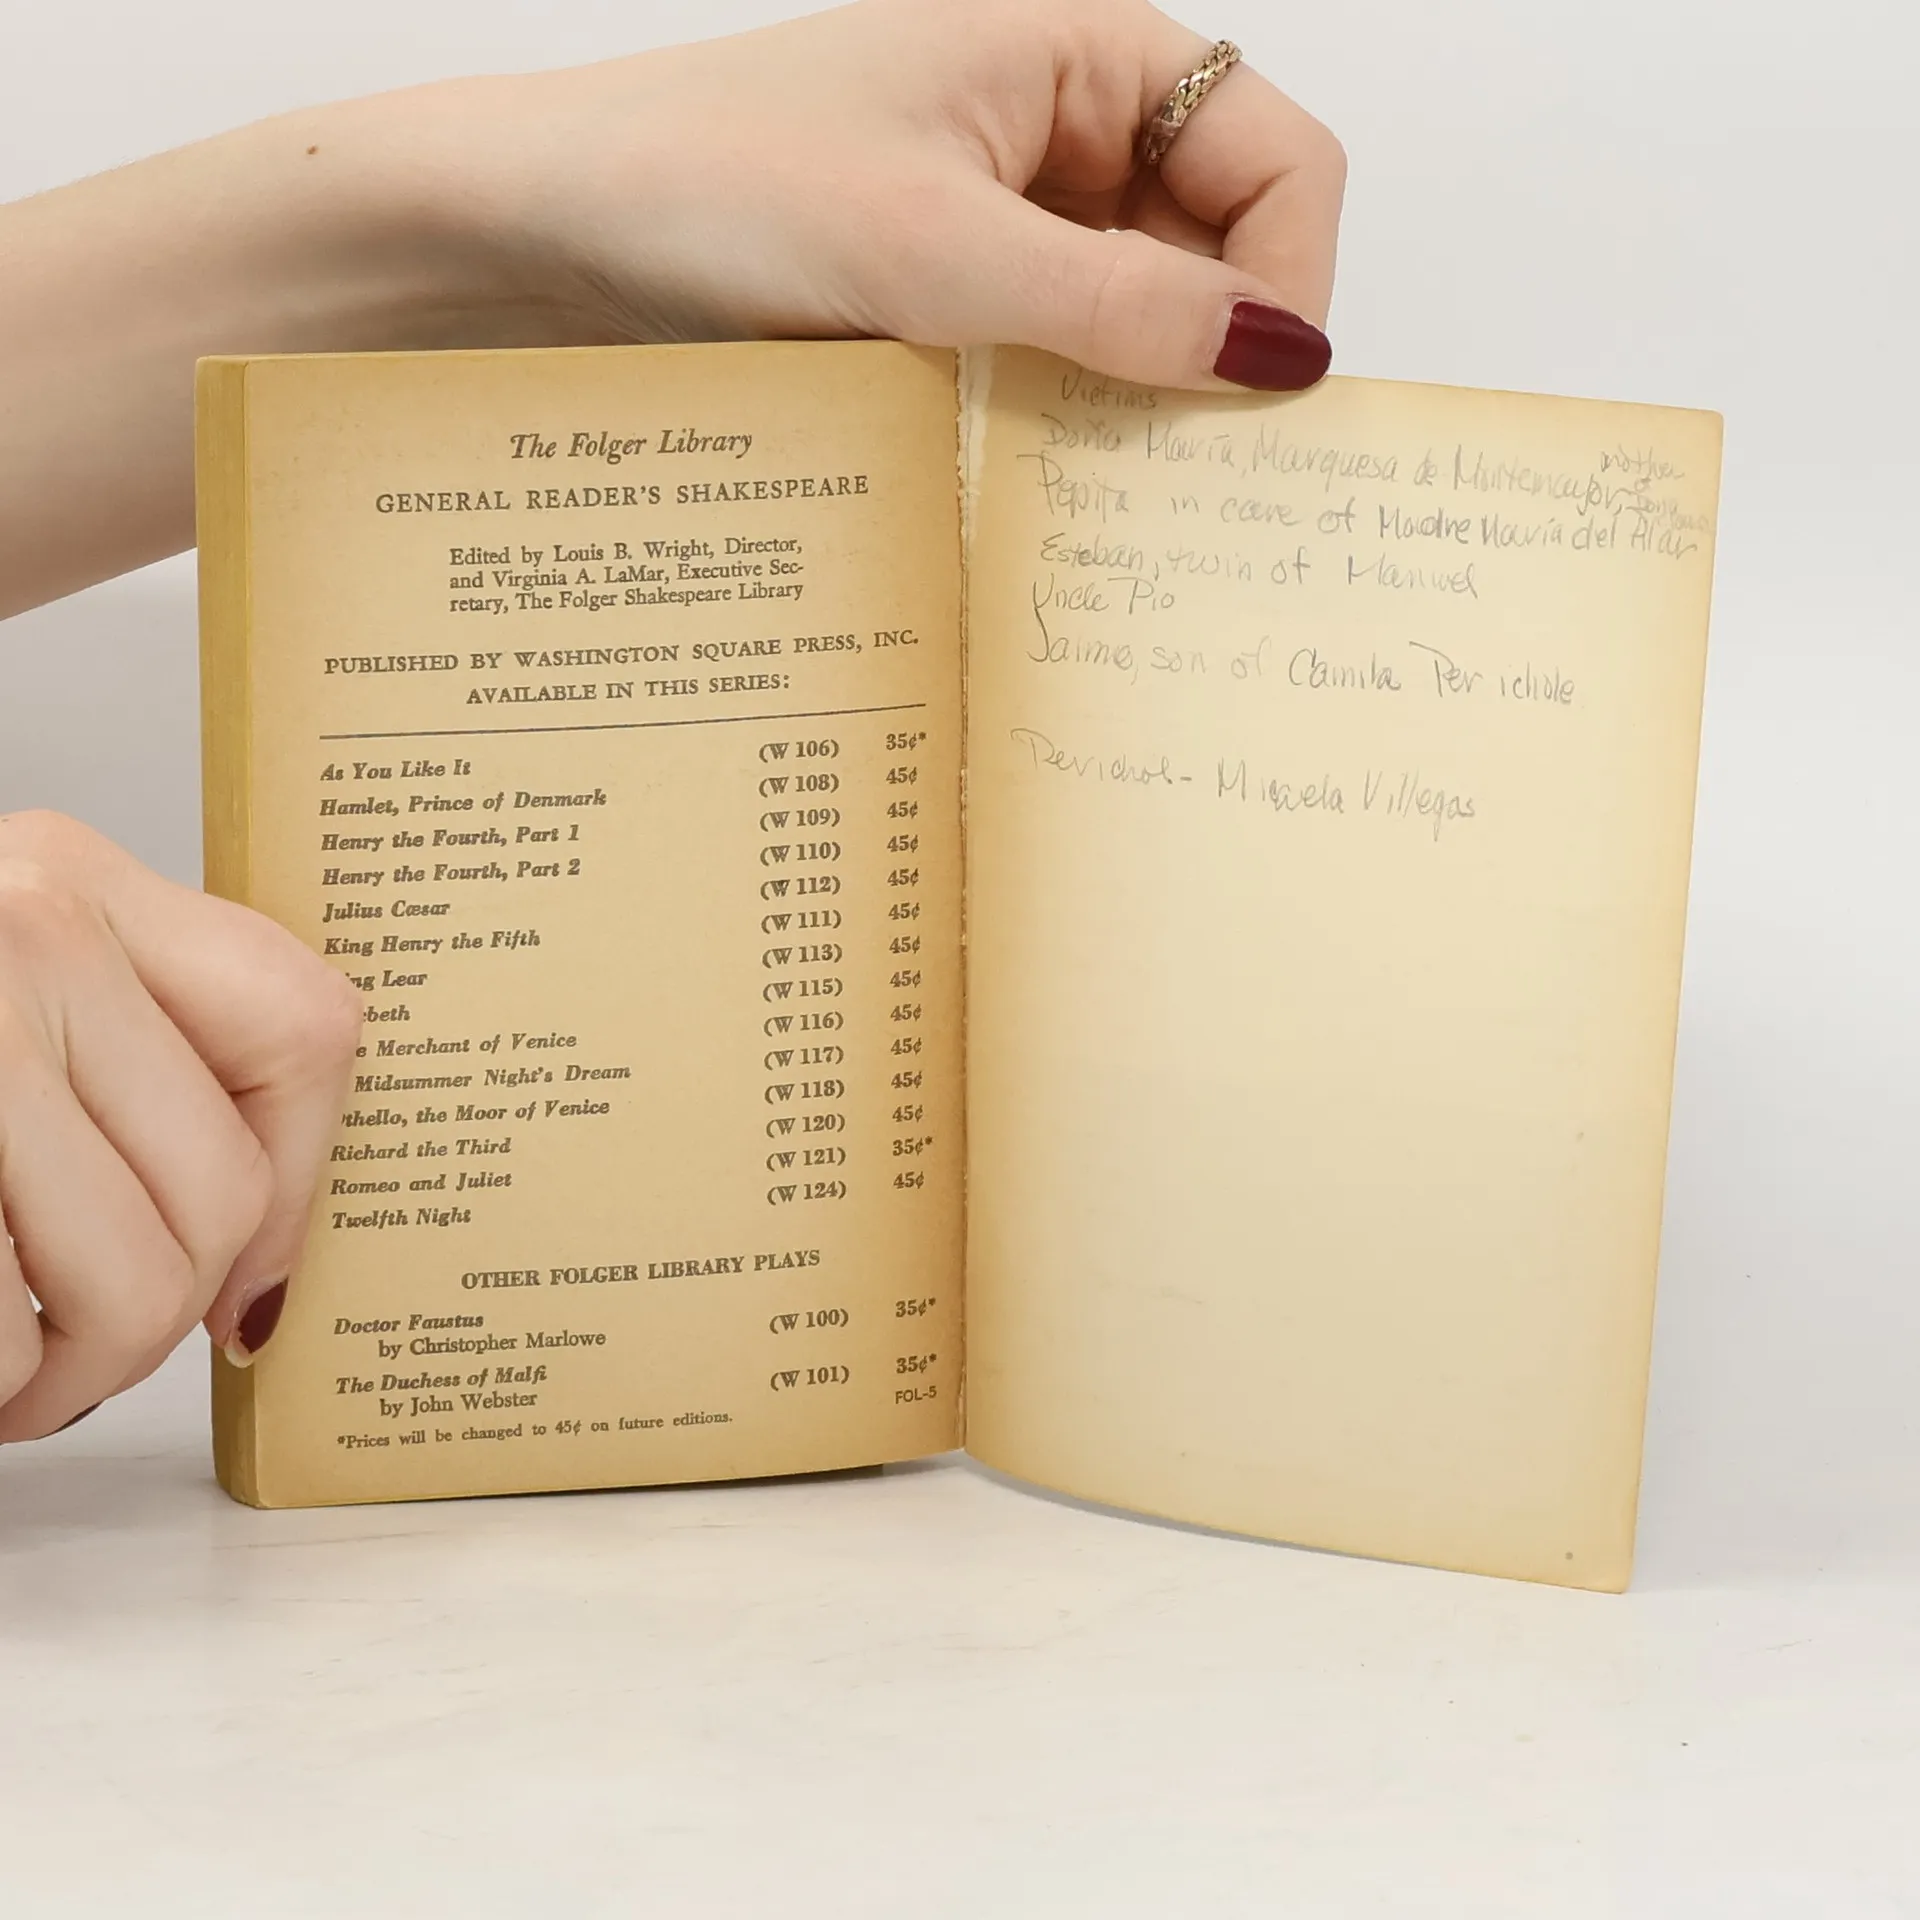 The Folger Library
GENERAL READER'S SHAKESPEARE
Edited by Louis B. Wright, Director,
and Virginia A. LaMar, Executive Sec-
retary, The Folger Shakespeare Library
PUBLISHED BY WASHINGTON SQUARE PRESS, INC.
AVAILABLE IN THIS SERIES:
As You Like It (W 106) 35¢*
Hamlet, Prince of Denmark (W 108) 45¢
Henry the Fourth, Part 1 (W 109) 45¢
Henry the Fourth, Part 2 (W 110) 45¢
Julius Cæsar (W 112) 45¢
King Henry the Fifth (W 111) 45¢
ng Lear (W 113) 45¢
cbeth (W 115) 45¢
e Merchant of Venice (W 116) 45¢
Midsummer Night's Dream (W 117) 45¢
thello, the Moor of Venice (W 118) 45¢
Richard the Third (W 120) 45¢
Romeo and Juliet (W 121) 35¢*
Twelfth Night (W 124) 45¢
OTHER FOLGER LIBRARY PLAYS
Doctor Faustus (W 100) 35¢*
by Christopher Marlowe
The Duchess of Malfi (W 101) 35¢*
by John Webster
FOL-5
*Prices will be changed to 45¢ on future editions.
Victims
Doña María, Marquesa de Montemayor, mother
Pepita in care of Madre María del Pilar
Esteban, twin of Manuel
Uncle Pio
Jaime, son of Camila Perichole
Perichole - Micaela Villegas